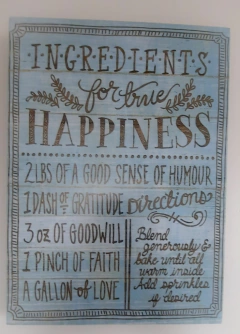 INGREDIENTS
for true
HAPPINESS
2 LBS OF A GOOD SENSE OF HUMOUR
1 DASH OF GRATITUDE
3 OZ OF GOODWILL
1 PINCH OF FAITH
A GALLON of LOVE
Directions
Blend
generously &
bake until all
warm inside
Add sprinkles
if desired